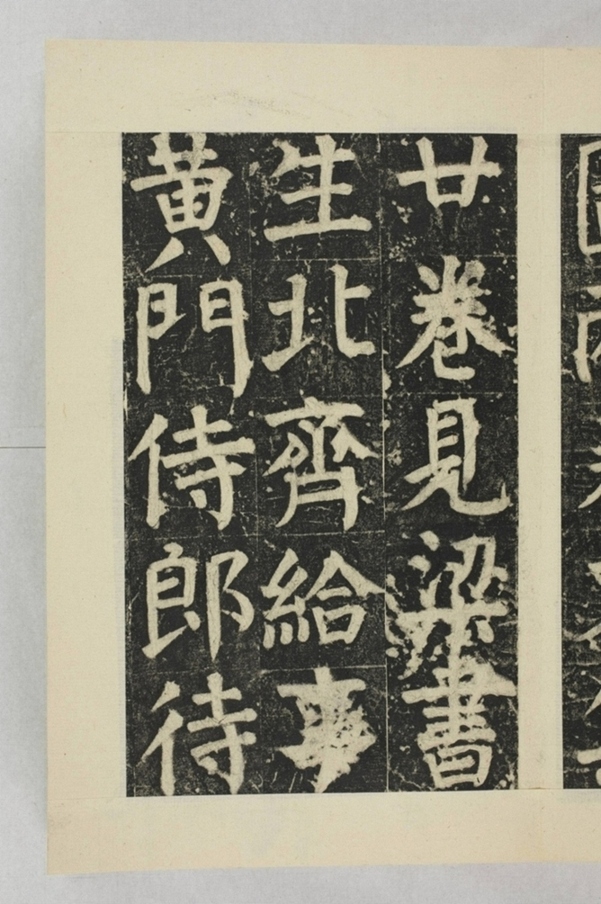 廿卷見梁書
生北齊給事
黄門侍郎待